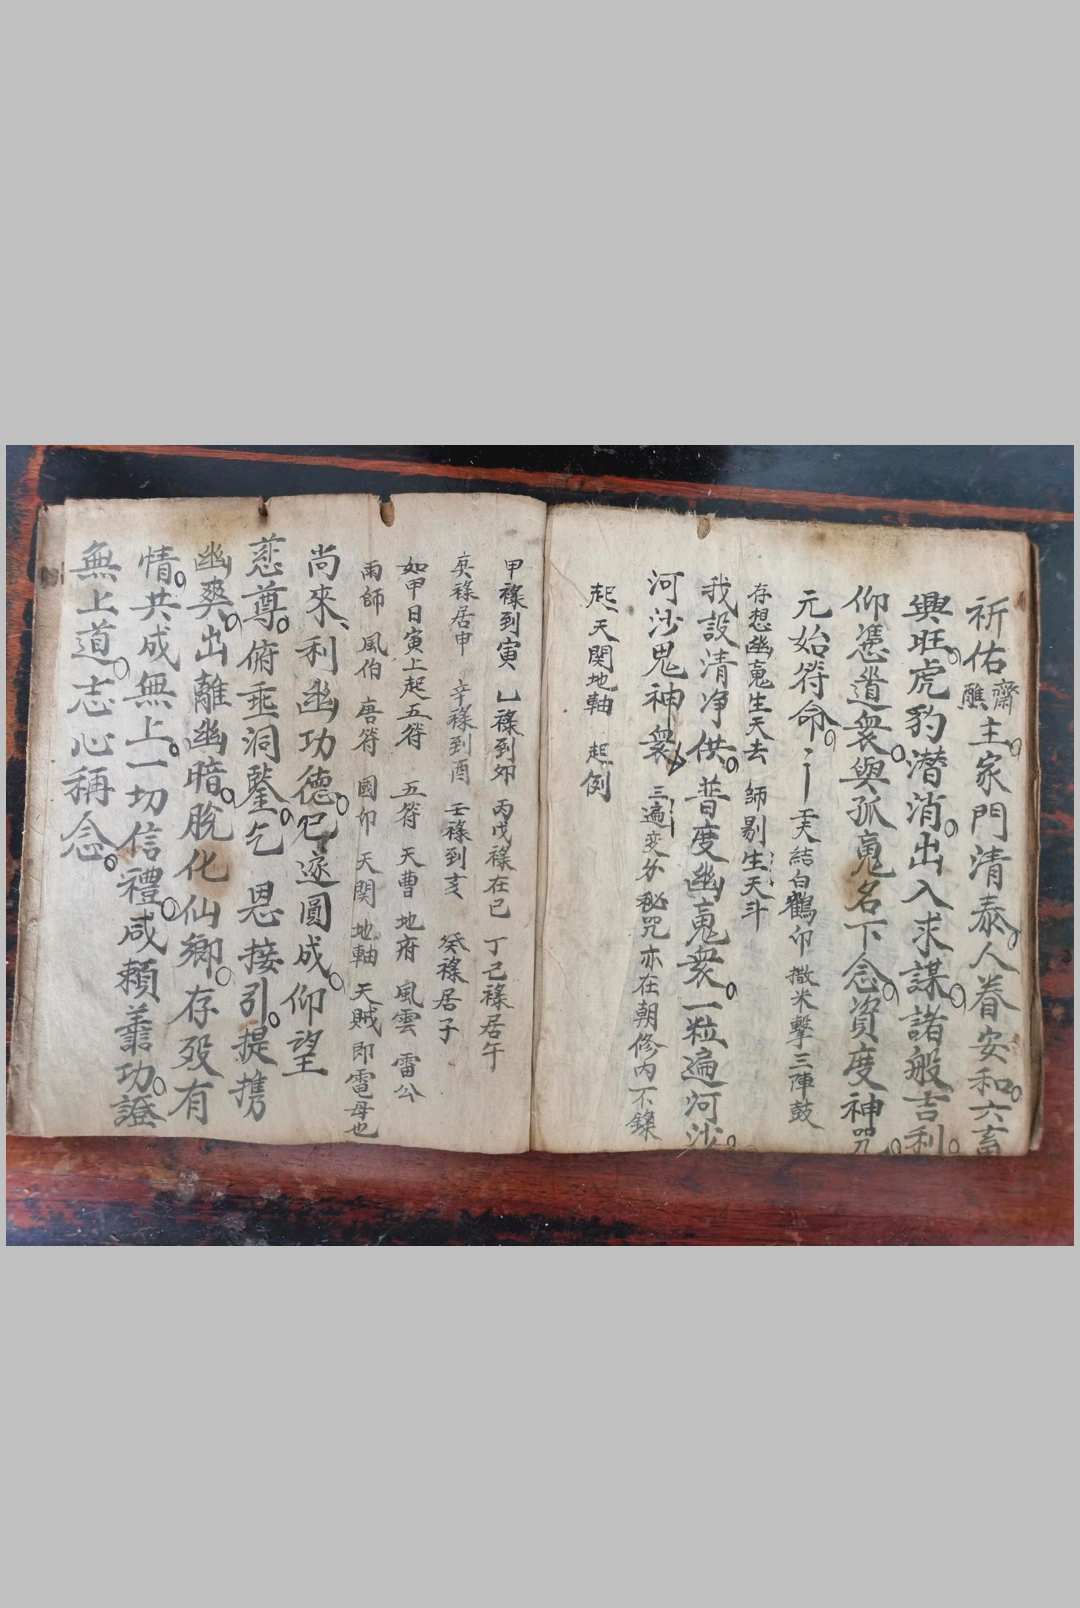 祈佑齋醮主家門清泰人眷安和六畜
興旺虎豹潛消出入求謀諸般吉利
仰憑道衆與孤魂名下念資度神咒
元始符命 結白鶴卯 撒米擊三陣鼓
存想幽魂生天去 師剔生天斗
我設清净供普度幽魂衆一粒遍河沙
河沙鬼神衆 三遍变外秘咒亦在朝修内不錄
起天関地軸 起例
甲祿到寅 乙祿到夘 丙戊祿在巳 丁己祿居午
庚祿居申 辛祿到酉 壬祿到亥 癸祿居子
如甲日寅上起五符 五符 天曹 地府 風雲 雷公
雨師 風伯 唐符 國卯 天関 地軸 天賊即電母也
尚來利幽功德已逐圓成仰望
慈尊俯垂洞鑒乞 恩接引提携
幽爽出離幽暗脫化仙鄉存殁有
情共成無上一切信禮咸賴善功證
無上道志心稱念